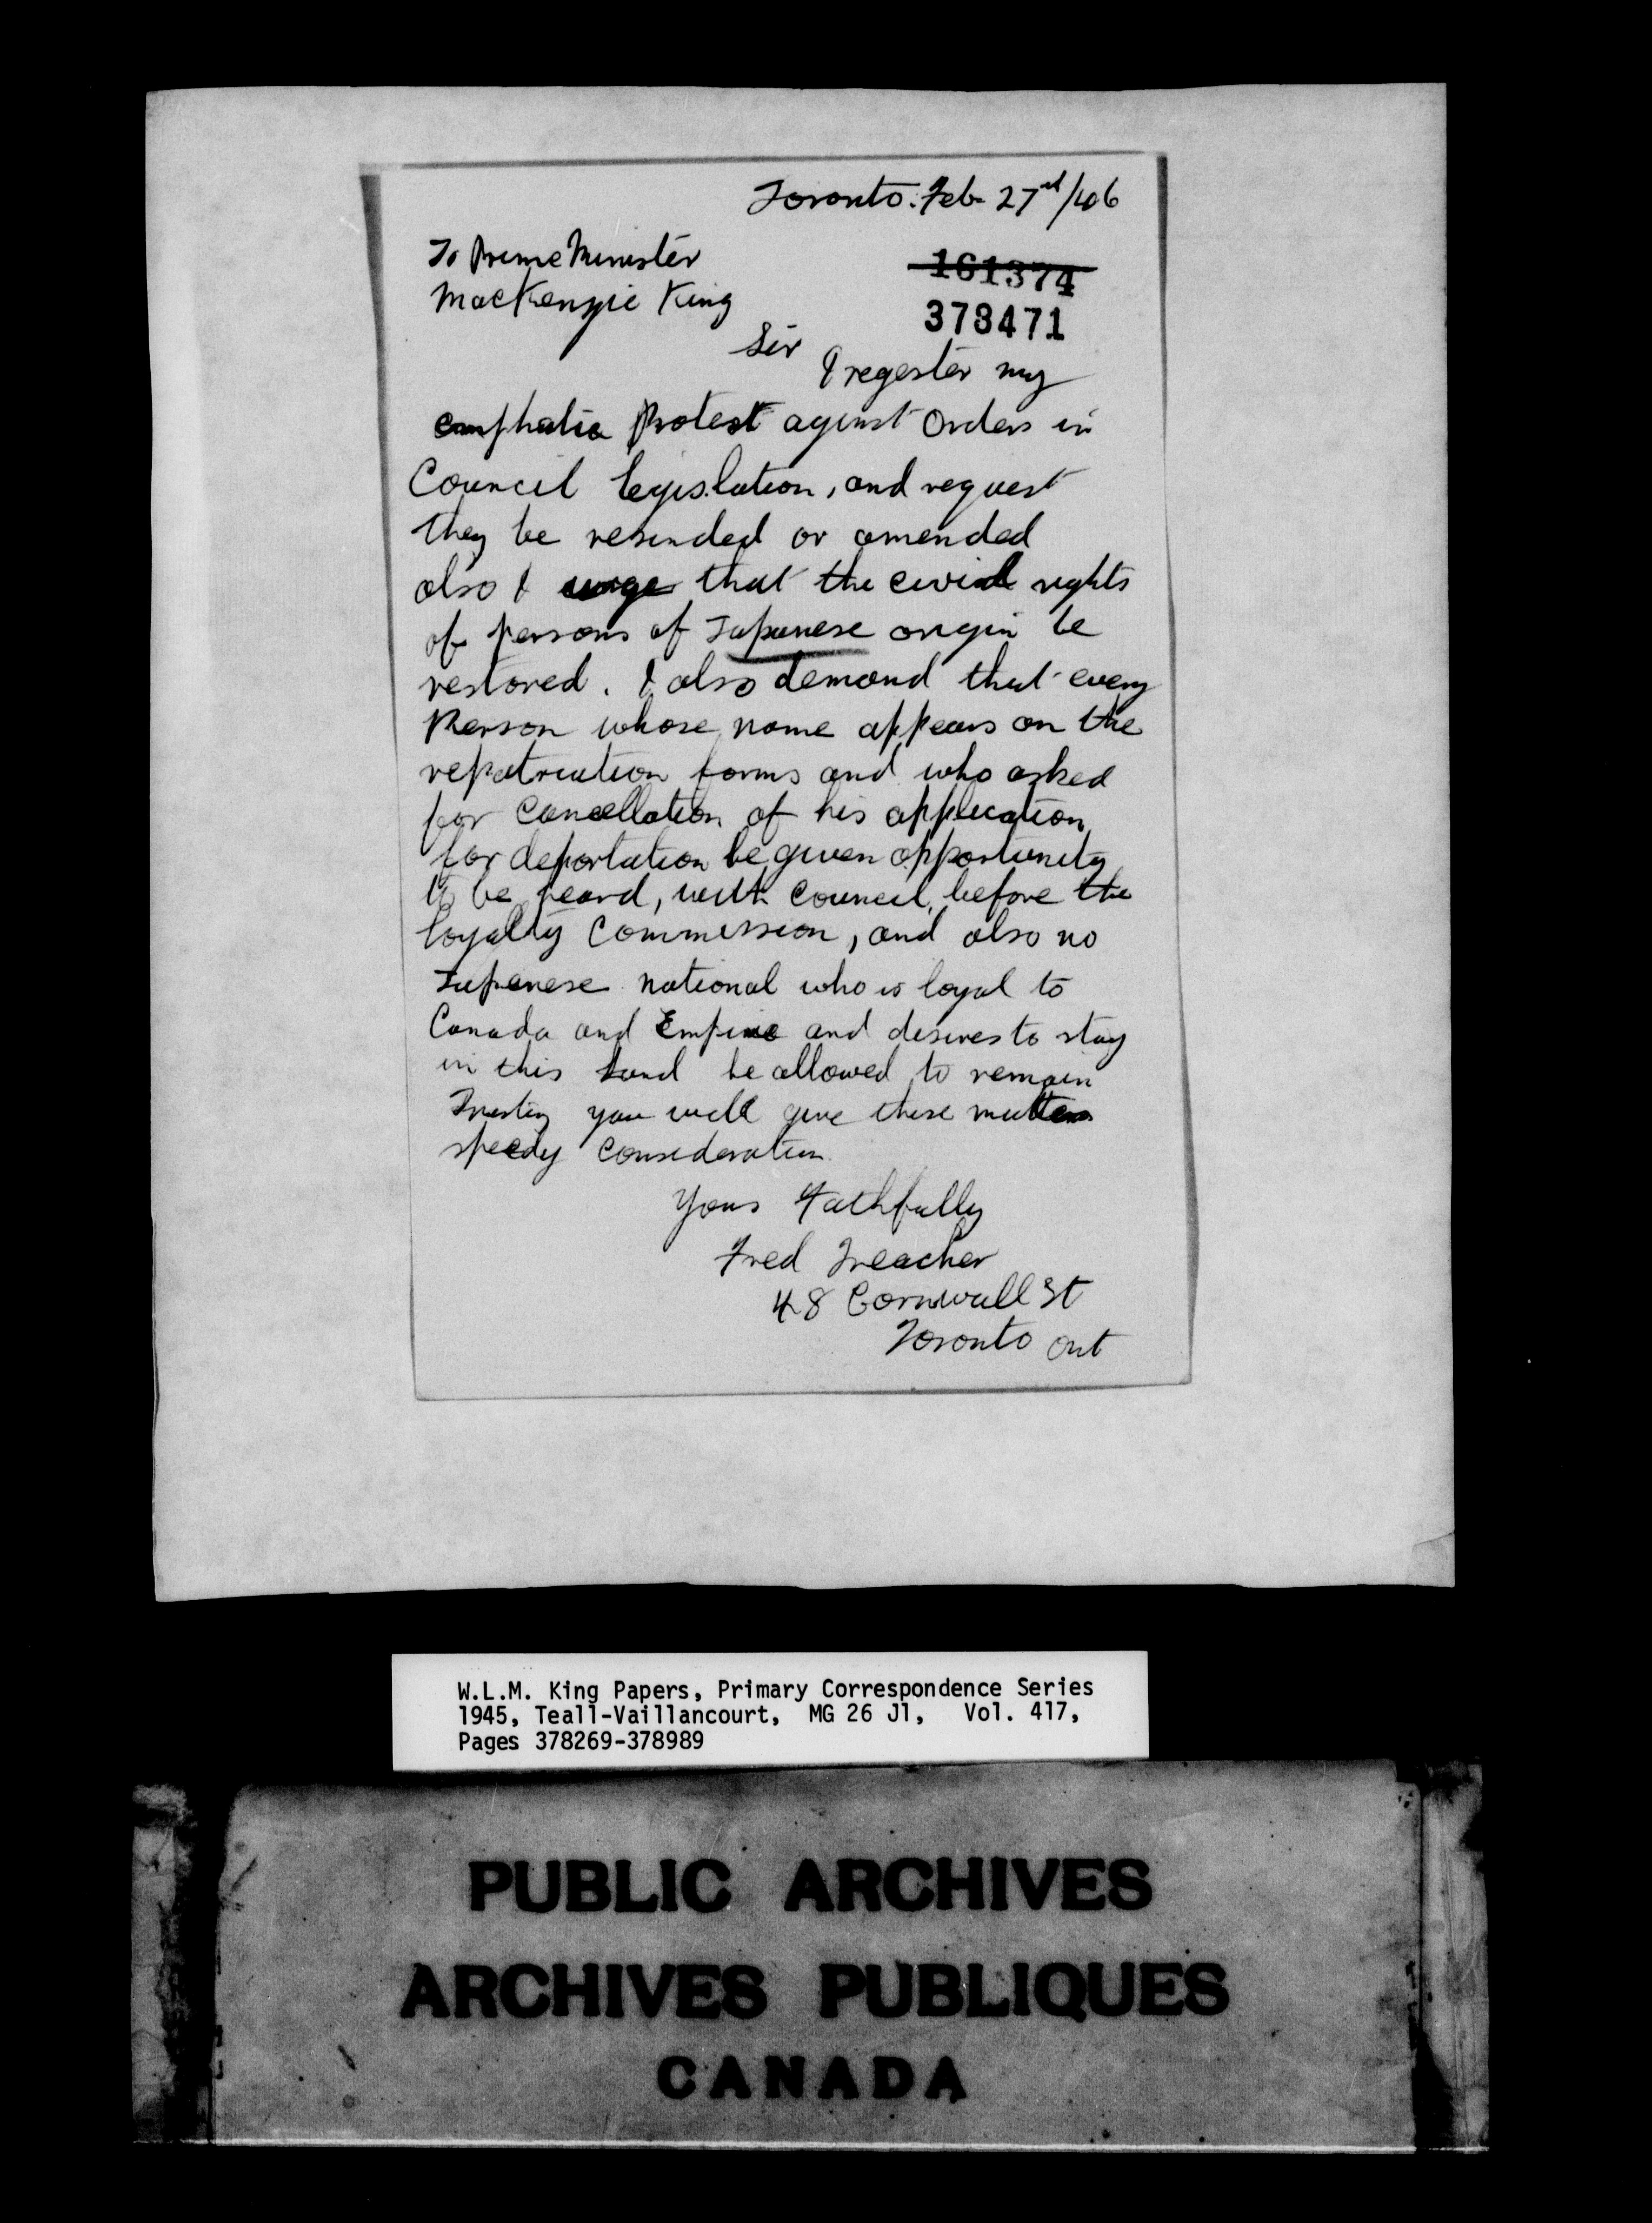 Toronto. Feb 27rd/46
To Prime Minister
MacKenzie King
161374
378471
Sir
I regester my
emphatic Protest aginst Orders in
Council legislation, and request
they be resinded or amended
also I urge that the civil rights
of persons of Japanese origin be
restored. I also demand that every
Person whose name appears on the
repatriation forms and who asked
for Cancellation of his application
for deportation be given opportunity
to be heard, with Council, before the
loyalty Commission, and also no
Japanese national who is loyal to
Canada and Empire and desires to stay
in this land be allowed to remain
Trusting you will give these matters
speedy Consideration
Yours Fathfully
Fred Treacher
48 Cornwall St
Toronto Ont
W.L.M. King Papers, Primary Correspondence Series
1945, Teall-Vaillancourt, MG 26 J1, Vol. 417,
Pages 378269-378989
PUBLIC ARCHIVES
ARCHIVES PUBLIQUES
CANADA